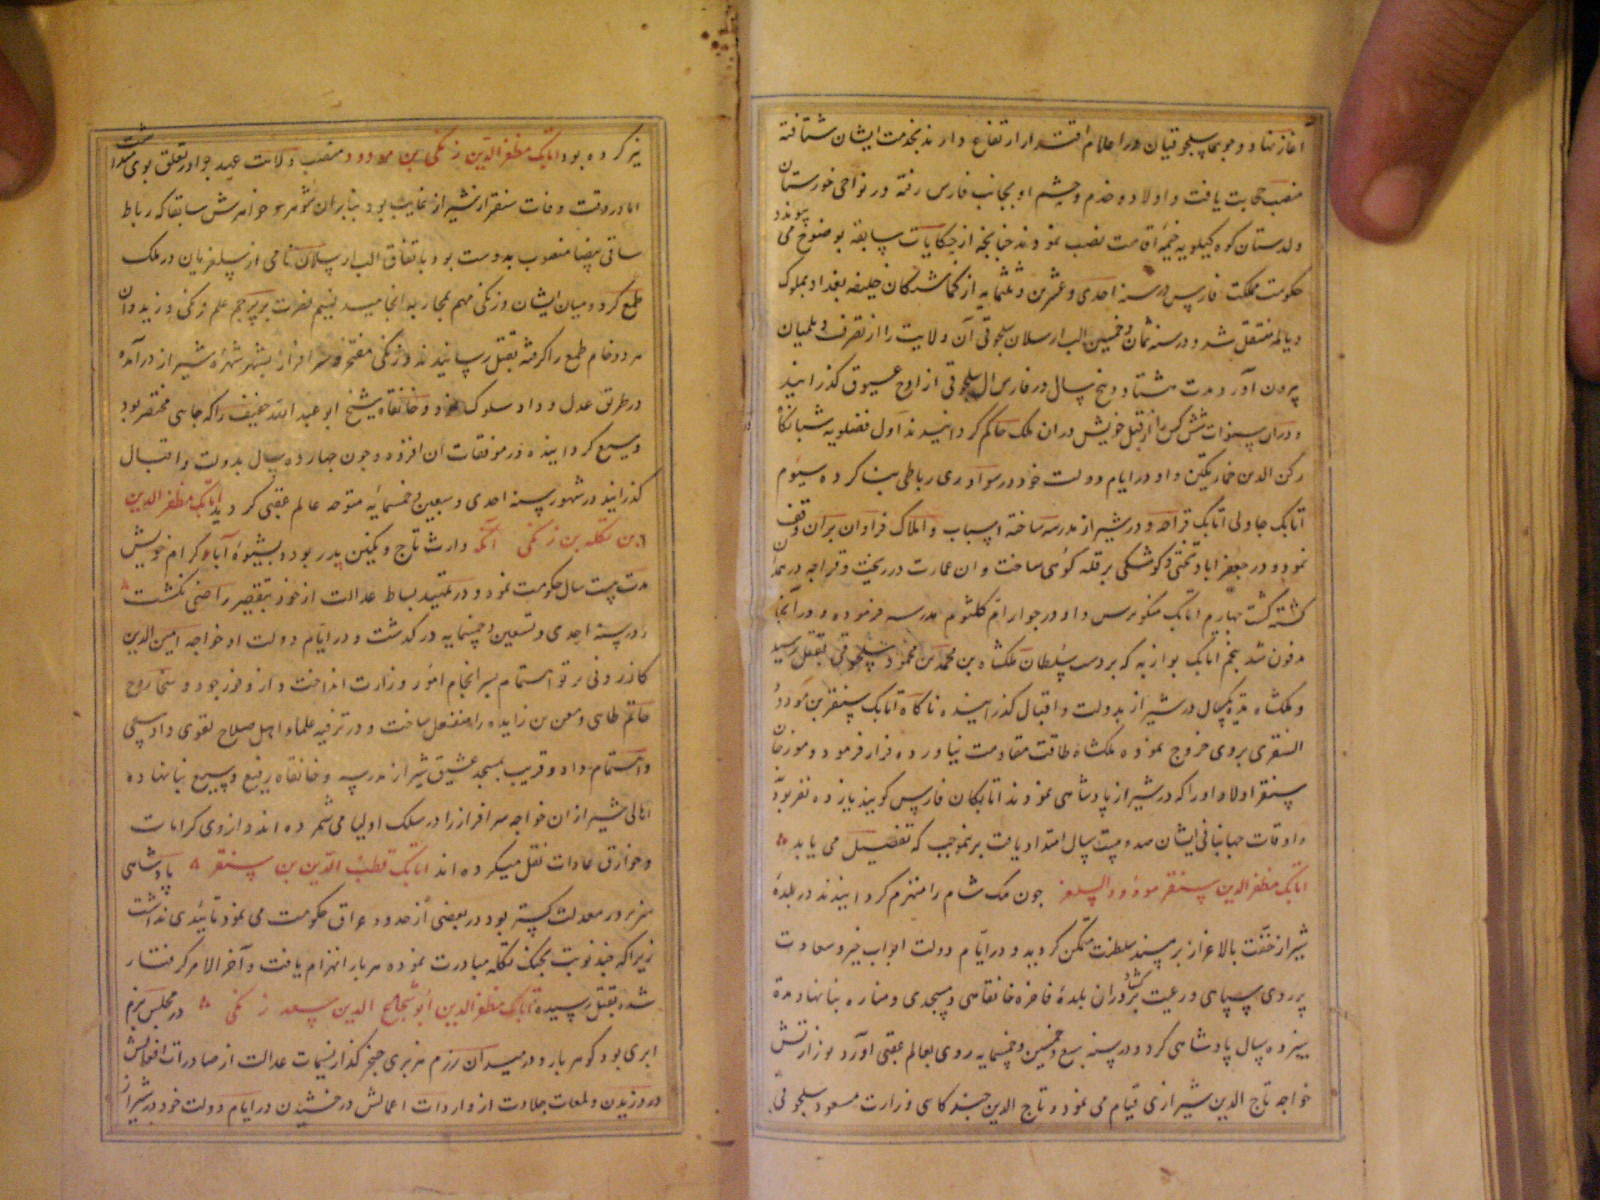 آغاز نهاد و چون سلجوقیان در اعلام اقتدار ارتفاع دارند بخدمت ایشان شتافته
منصب حجابت یافت و اولاد و خدم و حشم او بجانب فارس رفته در نواحی خوزستان
و لرستان کوه کیلویه خیمه اقامت نصب نمودند چنانچه از حکایات سابقه بوضوح می پیوندد
حکومت مملکت فارس در سنه احدی و عشرین و ثلثمایه از گماشتگان خلیفه بغداد بملوک
دیالمه منتقل شد و در سنه ثمان و خمسین الب ارسلان سلجوقی آن ولایت را از تصرف دیلمیان
بیرون آورد و مدت هشتاد و پنج سال در فارس ال سلجوقی از اوج عیوق گذرانید
و دران سنوات شش کس از قبل خویش دران ملک حاکم گردانیدند اول فضلویه شبانکاه
رکن الدین خمارتکین و او در ایام دولت خود در سواد ری رباطی بنا کرده سیوم
اتابک جاولی اتابک قراجه و در شیراز مدرسه ساخته اسباب و املاک فراوان بران وقف
نمود و در جعفرآباد تختی و کوشکی بر قله کوهی ساخت و ان عمارت در ریخت و قراجه در همدان
کشته گشت چهارم اتابک منکوبرس و او در جوار ام کلثوم مدرسه فرموده و در آنجا
مدفون شد پنجم اتابک بوازبه که بر دست سلطان ملکشاه بن محمد بن محمود سلجوقی بقتل رسید
و ملکشاه یکسال در شیراز بدولت و اقبال گذرانیده ناکاه اتابک سنقر بن مودود
السنقری بروی خروج نموده ملکشاه طاقت مقاومت نیاورده فرار فرمود و مورخان
سنقر اولاد او را که در شیراز پادشاهی نمودند اتابکان فارس گویند یازده نفر بود
و اوقات جهانبانی ایشان صد و بیست سال امتداد یافت برنموجب که تفصیل می یابد
اتابک مظفر الدین سنقر مودود السلغر چون ملک شام را منهزم گردانیدند در بلده
شیراز بالاعزاز بر مسند سلطنت متمکن گردید و در ایام دولت ابواب خیر و سعادت
بر روی سپاهی و رعیت گشاد و دران بلده فاخره خانقاهی و مسجدی و مناره بنا نهاد مدة
سیزده سال پادشاهی کرد و در سنه سبع و خمسین و خمسمایه روی بعالم عقبی آورد بوزارتش
خواجه تاج الدین شیرازی قیام می نمود و تاج الدین وزارت مسعود سلجوقی
نیز کرده بود اتابک مظفر الدین زنکی بن مودود منصب ولایت عهد برادر تعلق بوی میداشت
اما در وقت وفات سنقر از شیراز غایب بود بنابران شوهر خواهرش سابقا که رباط
سابق بیضا منصوب بدوست بود باتفاق الب ارسلان نامی از سلغریان در ملک
طمع کرد و میان ایشان و زنکی مهم بمحاربه انجامید نسیم نصرت بر پرچم علم زنکی وزید و ان
هر دو خام طمع را گرفته بقتل رسانیدند و زنکی مفتخر و سرافراز بشهر شیراز در آمده
در طریق عدل و داد سلوک نمود و خانقاه شیخ ابو عبد الله خفیف را که جایی مختصر بود
وسیع گردانیده در موقوفات ان افزوده و چون چهارده سال بدولت و اقبال
گذرانید در شهور سنه احدی و سبعین و خمسمائه متوجه عالم عقبی گردید اتابک مظفر الدین
بن تکله بن زنکی وارث تاج و نکین پدر بوده بشیوه آباء کرام خویش
مدت بیست سال حکومت نمود و در تمهید بساط عدالت از خود بتقصیر راضی نکشت
و در سنه احدی و تسعین و خمسمایه در گذشت و در ایام دولت او خواجه امین الدین
کازرونی پرتو اهتمام بسرانجام امور وزارت انداخت و از وفور جود و سخا روح
حاتم طایی و معن بن زایده را منفعل ساخت و در ترفیه علما و اهل صلاح تقوی داد سعی
و اهتمام داد و قریب بمسجد عتیق شیراز مدرسه و خانقاه رفیع وسیع بنا نهاده
اهالی شیراز ان خواجه سرافراز را در سلک اولیا می شمرده اند و از وی کرامات
و خوارق عادات نقل میکرده اند اتابک قطب الدین بن سنقر پادشاهی
هنرور معدلت گستر بود در بعضی از حدود عراق حکومت می نمود تا ئیدی نداشت
زیرا که چند نوبت بجنک تکله مبادرت نموده هر بار انهزام یافت و آخر الامر گرفتار
شده بقتل رسیده اتابک مظفر الدین ابو شجاع الدین سعد زنکی در مجلس بزم
ابری بود گوهر بار و در میدان رزم هزبری خنجر گذار نسیمات عدالت از صادرات افعالش
در وزیدن و لمعات جلادت از واردات اعمالش درخشیدن در ایام دولت خود در شیراز